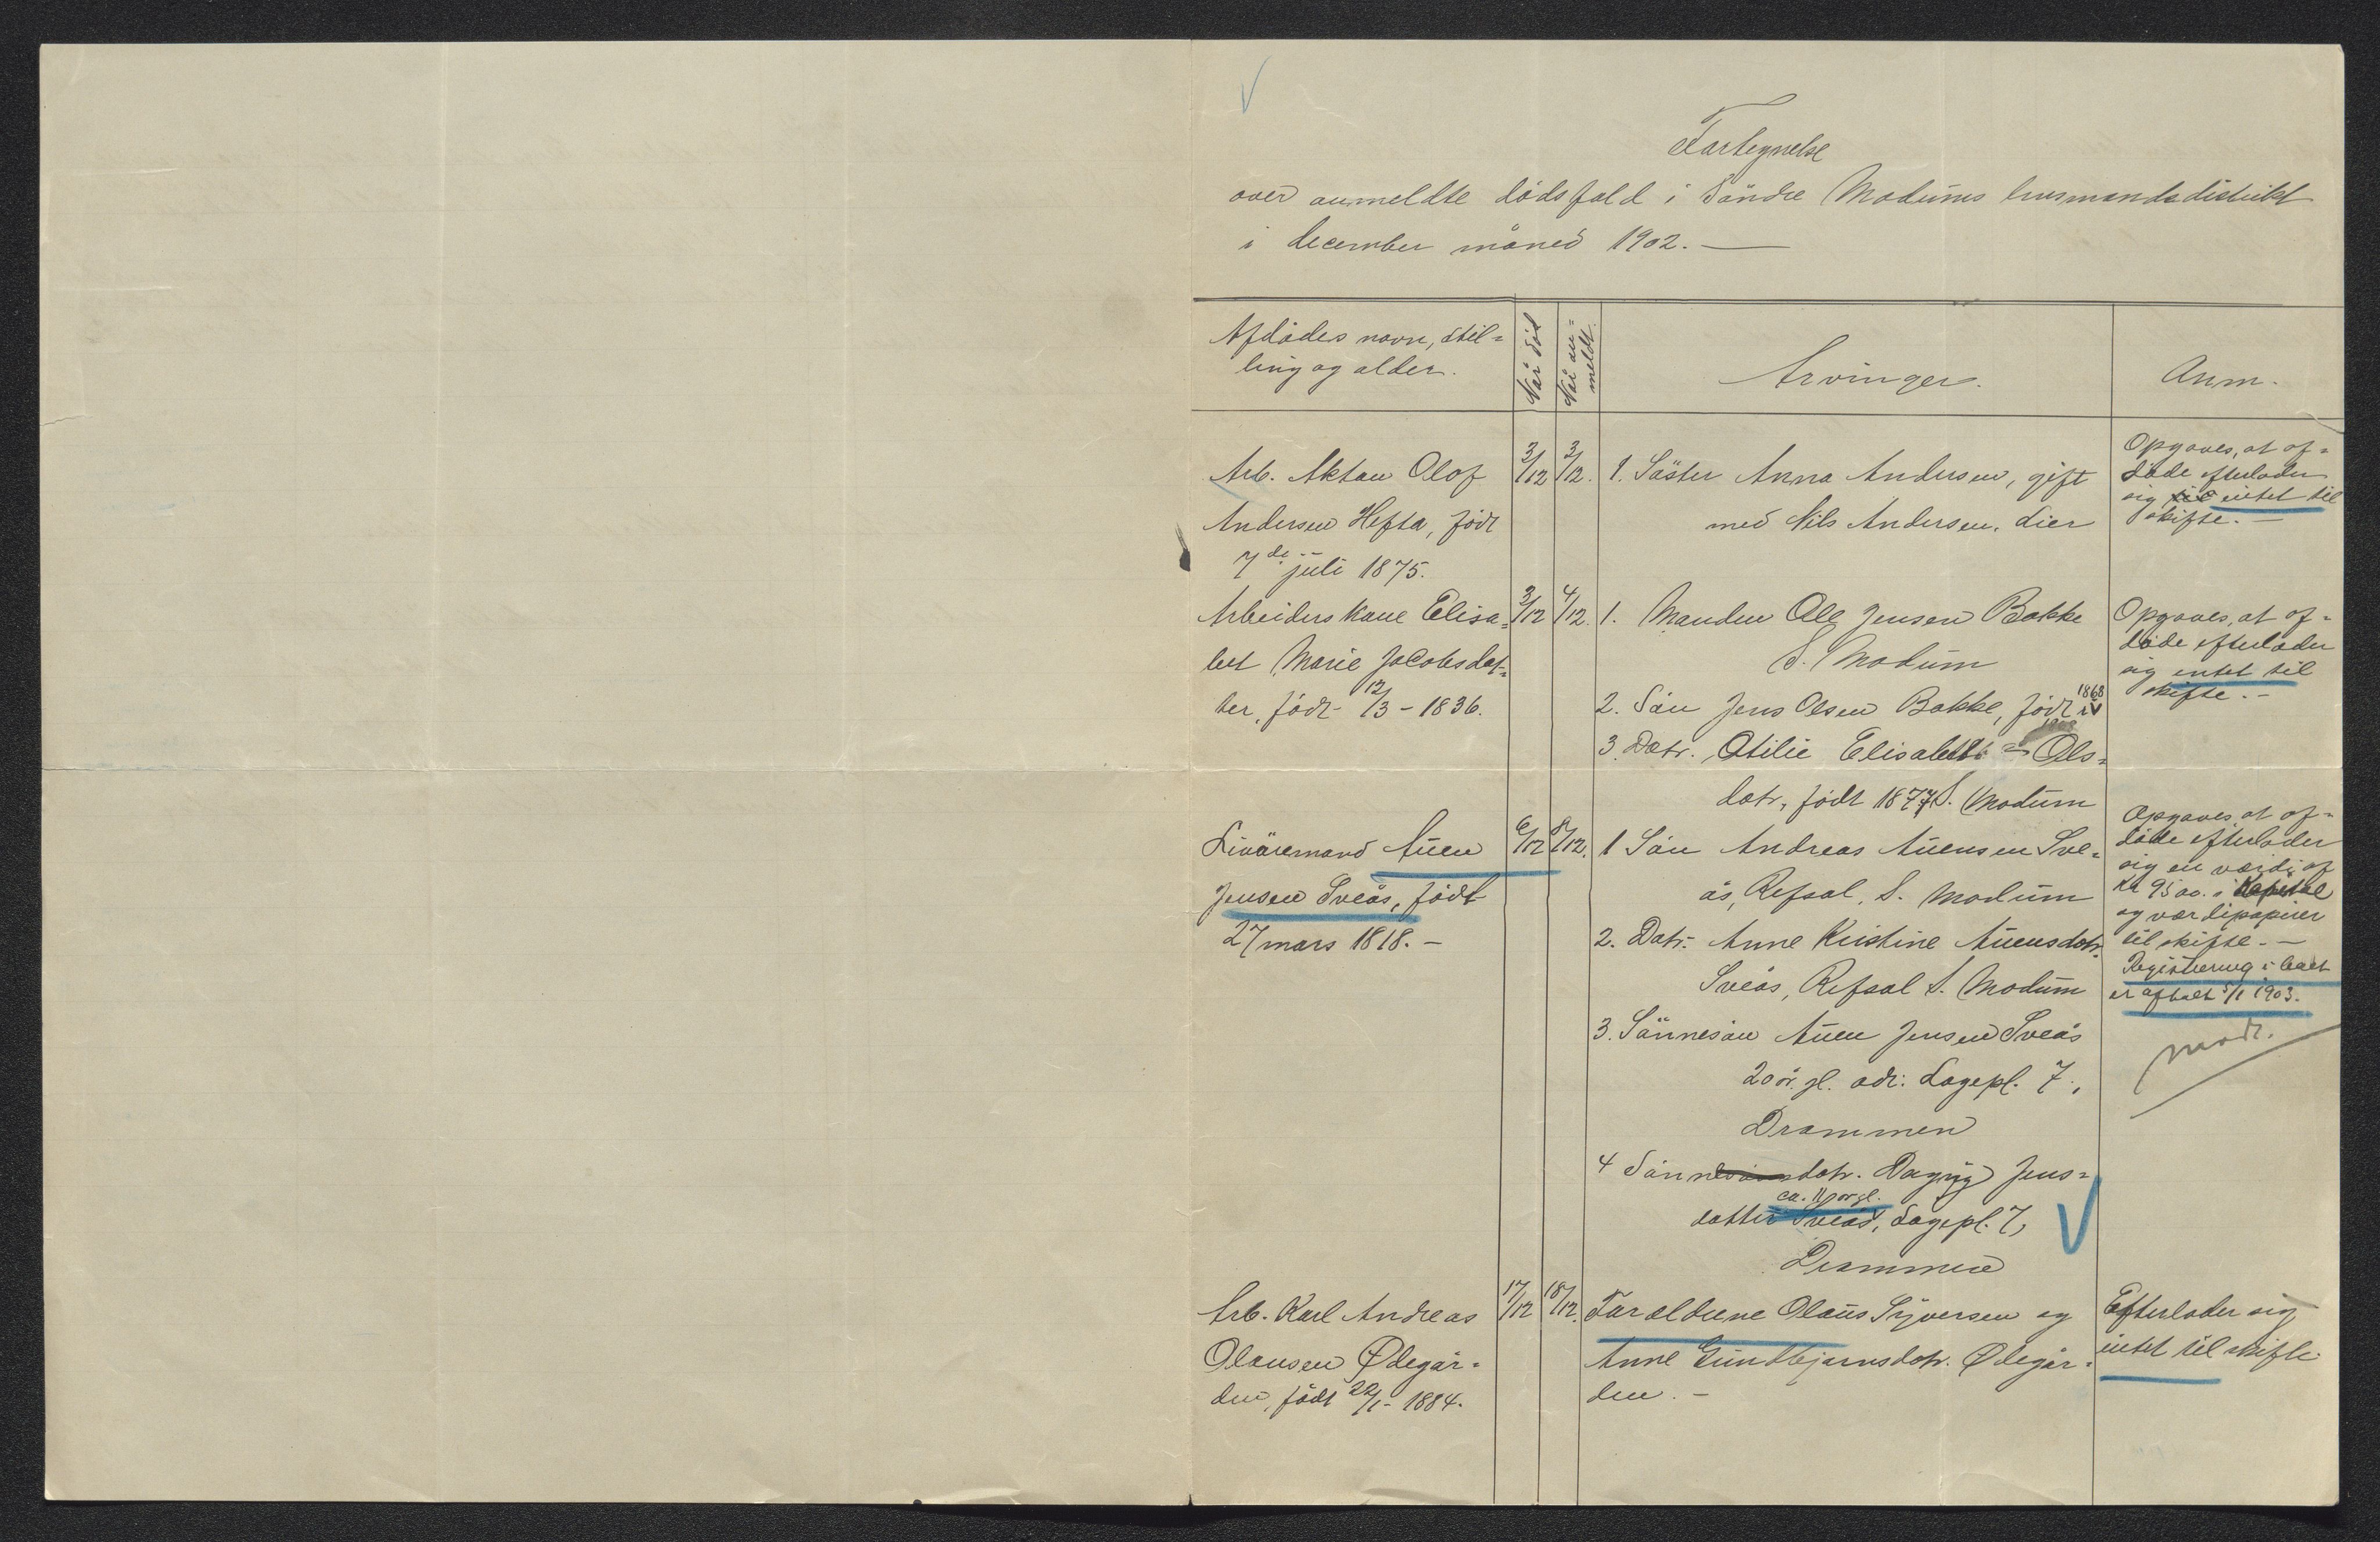 Fortegnelse
over anmeldte dödsfald i Söndre Modums lensmandsdistrikt
i december måned 1902. —
Afdödes navn, stil=
ling og alder.
Når död
Når an=
meldt.
Arvinger.
Anm.
Arb. Aktau Olof
Andersen Hefta, født
7de juli 1875.
3/12
3/12.
1. Söster Anna Andersen, gift
med Nils Andersen. Lier
Opgaves, at af=
döde efterlader
sig intet til
skifte. —
Arbeiderskone Elisa=
bet Marie Jacobsdat=
ter, född 12/3 - 1836.
3/12
4/12.
1. Manden Ole Jensen Bakke
S. Modum
2. Sön Jens Olsen Bakke, född i 1868
3. Datr. Otilie Elisabett Ols=
datr, född 1877 S. Modum
Opgaves, at af=
döde efterlader
sig intet til
skifte. —
Livöremand Auen
Jensen Sveås, född
27 mars 1818. —
6/12
8/12.
1 Sön Andreas Auensen Sve=
ås, Refsal, S. Modum
2. Datr. Anne Kristine Auensdatr.
Sveås, Refsal S. Modum
3. Sönnesön Auen Jensen Sveås
20 år. gl. adr: Lagepl. 7.,
Drammen
4 Sönnedatr. Dagny Jens=
ca. 11 år gl.
datter Sveås, Lagepl. 7,
Drammen
Opgaves, at af=
döde efterlader
sig en værdi af
Kr 9500. i Kapital
og værdipapirer
til skifte. —
Registrering i boet
er aftalt 5/1 1903.
Arb. Karl Andreas
Olausen Ødegår=
den, född 22/1 - 1884.
17/12
18/12.
Foräldrene Olaus Syversen og
Anne Gundbjørnsdatr. Ødegår=
den. —
Efterlader sig
intet til skifte.